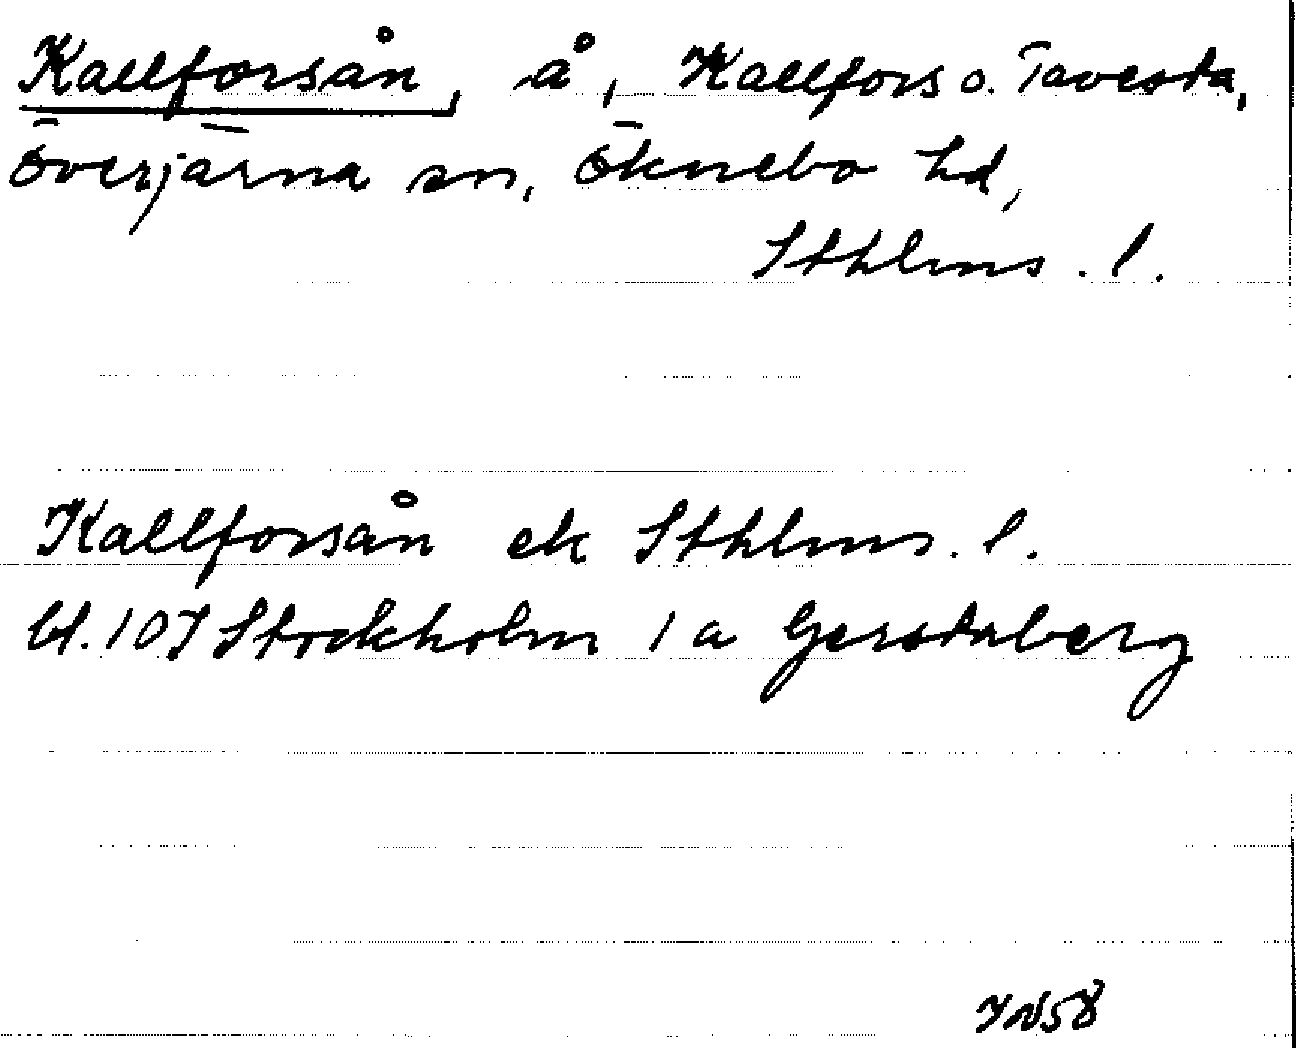 Kallforsån, å, Kallfors o. Tavesta,
Överjärna sn, Öknebo hd,
Sthlms. l.
Kallforsån ek Sthlms. l.
bl. 10I Stockholm 1 a Gerstaberg